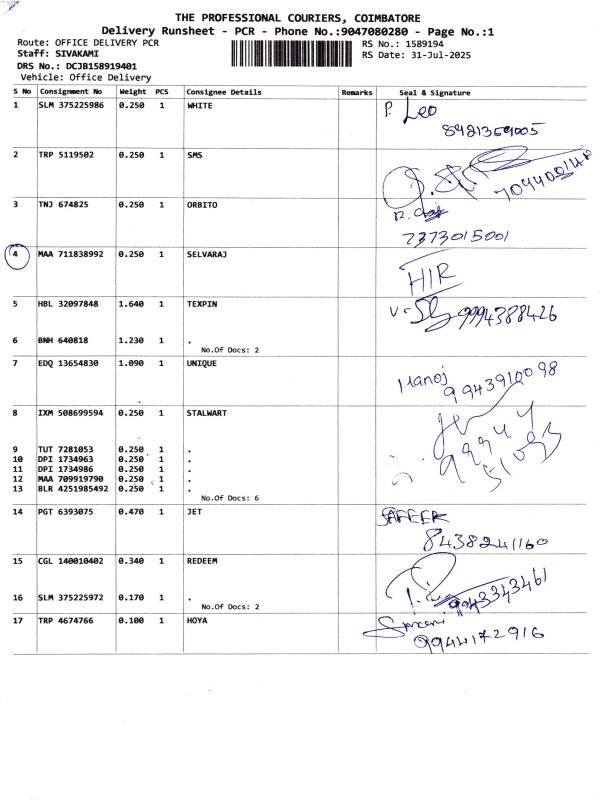 THE PROFESSIONAL COURIERS, COIMBATORE
Delivery Runsheet - PCR - Phone No.:9047080280 - Page No.:1
Route: OFFICE DELIVERY PCR RS No.: 1589194
Staff: SIVAKAMI RS Date: 31-Jul-2025
DRS No.: DCJB158919401
Vehicle: Office Delivery
S No Consignment No Weight PCS Consignee Details Remarks Seal & Signature
1 SLM 375225986 0.250 1 WHITE P. Leo
8921369005
2 TRP 5119502 0.250 1 SMS
3 TNJ 674825 0.250 1 ORBITO
7373015001
4 MAA 711838992 0.250 1 SELVARAJ HIR
5 HBL 32097848 1.640 1 TEXPIN 9994388426
6 BNH 640818 1.230 1 .
No.Of Docs: 2
7 EDQ 13654830 1.090 1 UNIQUE Manoj
9943910098
8 IXM 508699594 0.250 1 STALWART
9 TUT 7281053 0.250 1 .
10 DPI 1734963 0.250 1 .
11 DPI 1734986 0.250 1 .
12 MAA 709919790 0.250 1 .
13 BLR 4251985492 0.250 1 .
No.Of Docs: 6
14 PGT 6393075 0.470 1 JET SAFEER
8438241160
15 CGL 140010402 0.340 1 REDEEM
9943343461
16 SLM 375225972 0.170 1 .
No.Of Docs: 2
17 TRP 4674766 0.100 1 HOYA
9944172916